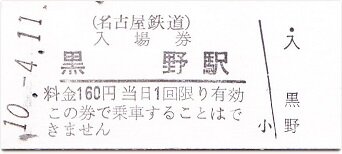 10.-4.11
(名古屋鉄道)
入場券
黒野駅
料金160円 当日1回限り有効
この券で乗車することはで
きません
入
黒野
小